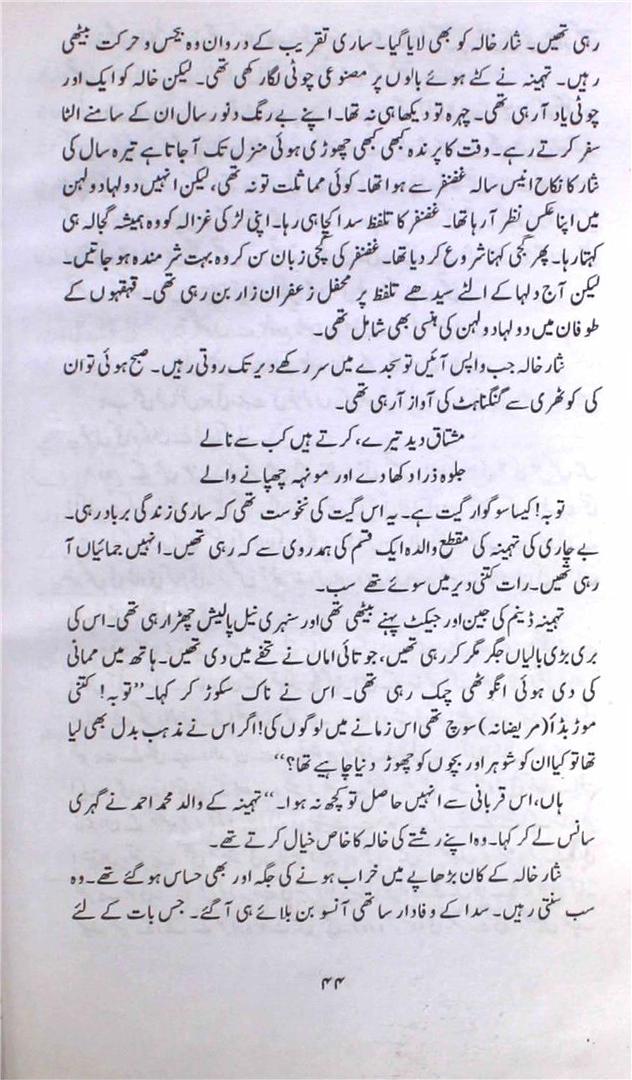 رہی تھیں۔ نثار خالہ کو بھی لایا گیا۔ ساری تقریب کے دروان وہ بیحس و حرکت بیٹھی
رہیں۔ تہمینہ نے کٹے ہوئے بالوں پر مصنوعی چوٹی لگا رکھی تھی۔ لیکن خالہ کو ایک اور
چوٹی یاد آ رہی تھی۔ چہرہ تو دیکھا ہی نہ تھا۔ اپنے بے رنگ و نور سال ان کے سامنے الٹا
سفر کرتے رہے۔ وقت کا پرندہ کبھی کبھی چھوڑی ہوئی منزل تک آ جاتا ہے تیرہ سال کی
نثار کا نکاح انیس سالہ غضنفر سے ہوا تھا۔ کوئی مماثلت تو نہ تھی، لیکن انہیں دولہا دولہن
میں اپنا عکس نظر آ رہا تھا۔ غضنفر کا تلفظ سدا کچا ہی رہا۔ اپنی لڑکی غزالہ کو وہ ہمیشہ گجالہ ہی
کہتا رہا۔ پھر گجی کہنا شروع کر دیا تھا۔ غضنفر کی کچی زبان سن کر وہ بہت شرمندہ ہو جاتیں۔
لیکن آج دلہا کے الٹے سیدھے تلفظ پر محفل زعفران زار بن رہی تھی۔ قہقہوں کے
طوفان میں دولہا دولہن کی ہنسی بھی شامل تھی۔
نثار خالہ جب واپس آئیں تو سجدے میں سر رکھے دیر تک روتی رہیں۔ صبح ہوئی تو ان
کی کوٹھری سے گنگناہٹ کی آواز آ رہی تھی۔
مشتاق دید تیرے، کرتے ہیں کب سے نالے
جلوہ ذرا دکھا دے اور مونہہ چھپانے والے
توبہ! کیسا سوگوار گیت ہے۔ یہ اس گیت کی نحوست تھی کہ ساری زندگی برباد رہی۔
بے چاری کی تہمینہ کی مقطع والدہ ایک قسم کی ہمدروی سے کہہ رہی تھیں۔ انہیں جمائیاں آ
رہی تھیں۔ رات کتنی دیر میں سوئے تھے سب۔
تہمینہ ڈینم کی جین اور جیکٹ پہنے بیٹھی تھی اور سنہری نیل پالیش چھڑا رہی تھی۔ اس کی
بری بڑی بالیاں جگر مگر کر رہی تھیں، جو تائی اماں نے تحفے میں دی تھیں۔ ہاتھ میں ممانی
کی دی ہوئی انگوٹھی چمک رہی تھی۔ اس نے ناک سکوڑ کر کہا۔ ”توبہ! کتنی
موربڈ اُ (مریضانہ) سوچ تھی اس زمانے میں لوگوں کی! اگر اس نے مذہب بدل بھی لیا
تھا تو کیا ان کو شوہر اور بچوں کو چھوڑ دینا چاہیے تھا؟“
ہاں، اس قربانی سے انہیں حاصل تو کچھ نہ ہوا۔“ تہمینہ کے والد محمد احمد نے گہری
سانس لے کر کہا۔ وہ اپنے رشتے کی خالہ کا خاص خیال کرتے تھے۔
نثار خالہ کے کان بڑھاپے میں خراب ہونے کی جگہ اور بھی حساس ہو گئے تھے۔ وہ
سب سنتی رہیں۔ سدا کے وفادار ساتھی آنسو بن بلائے ہی آ گئے۔ جس بات کے لئے
۴۴